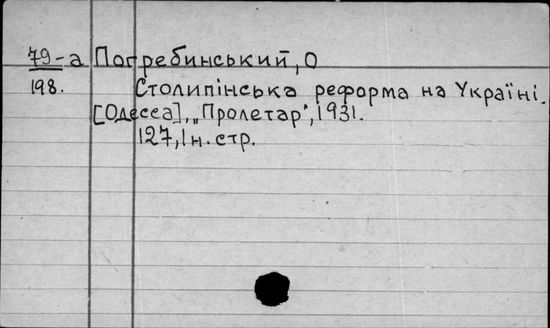 79-а Погребинський, О
198. Столипінська реформа на Україні.
[Одесса], „Пролетар", 1931.
127, 1 н. стр.